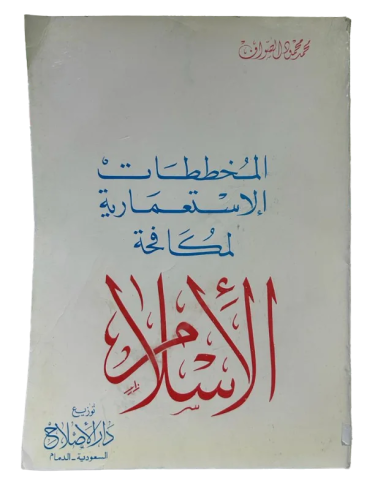 محمد محمود الصواف
المخططات
الاستعمارية
لمكافحة
الإسلام
توزيع
دار الإصلاح
السعودية - الدمام